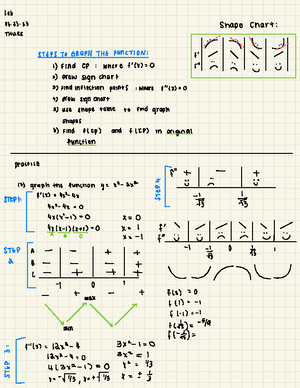 Shape Chart:
THURS
STEPS TO GRAPH THE FUNCTION:
1) Find CP : where f'(x) = 0
2) Draw sign chart
3) Find inflection points : where f''(x) = 0
4) Draw sign chart
5) Use shape table to find graph shapes
6) Find f(CP) and f(IP) in original function
f'
f''
Practice
graph the function y = x⁴-2x²
STEP 1:
f'(x) = 4x³-4x
4x³-4x = 0
4x(x²-1) = 0
4x(x-1)(x+1) = 0
x = 0
x = 1
x = -1
STEP 2
A B C
-1 0 1
- + - +
max
min
STEP 3:
f''(x) = 12x²-4
12x²-4 = 0
4(3x²-1) = 0
3x²-1 = 0
3x² = 1
x² = 1/3
STEP 4
f'' + - +
-1/√3 1/√3
f'
f''
-1 -1/√3 0 1/√3 1
f(0) = 0
f(-1) = -1
f(1) = -1
f(1/√3) = -5/9
f(-1/√3) =